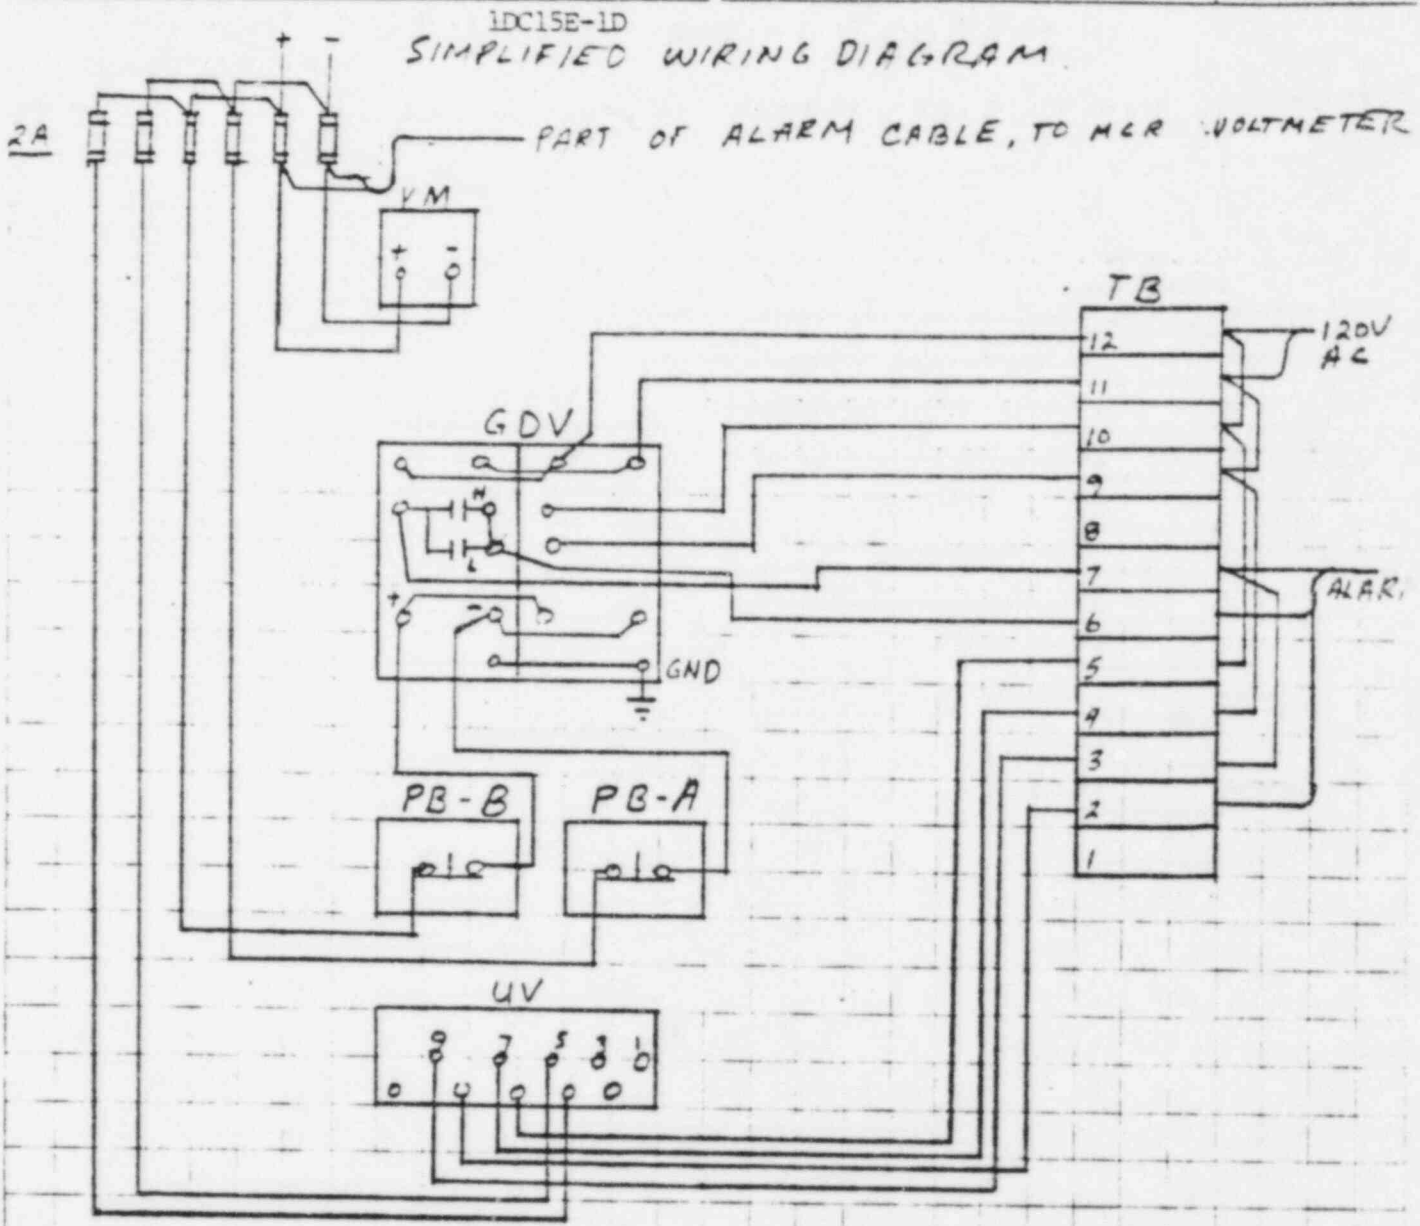 1DC15E-1D
SIMPLIFIED WIRING DIAGRAM
+ -
2A
PART OF ALARM CABLE, TO MCR VOLTMETER
VM
+ -
TB
12
11
10
9
8
7
6
5
4
3
2
1
120V
AC
ALAR
GDV
H
L
+ -
GND
PB-B PB-A
UV
9 7 5 3 1